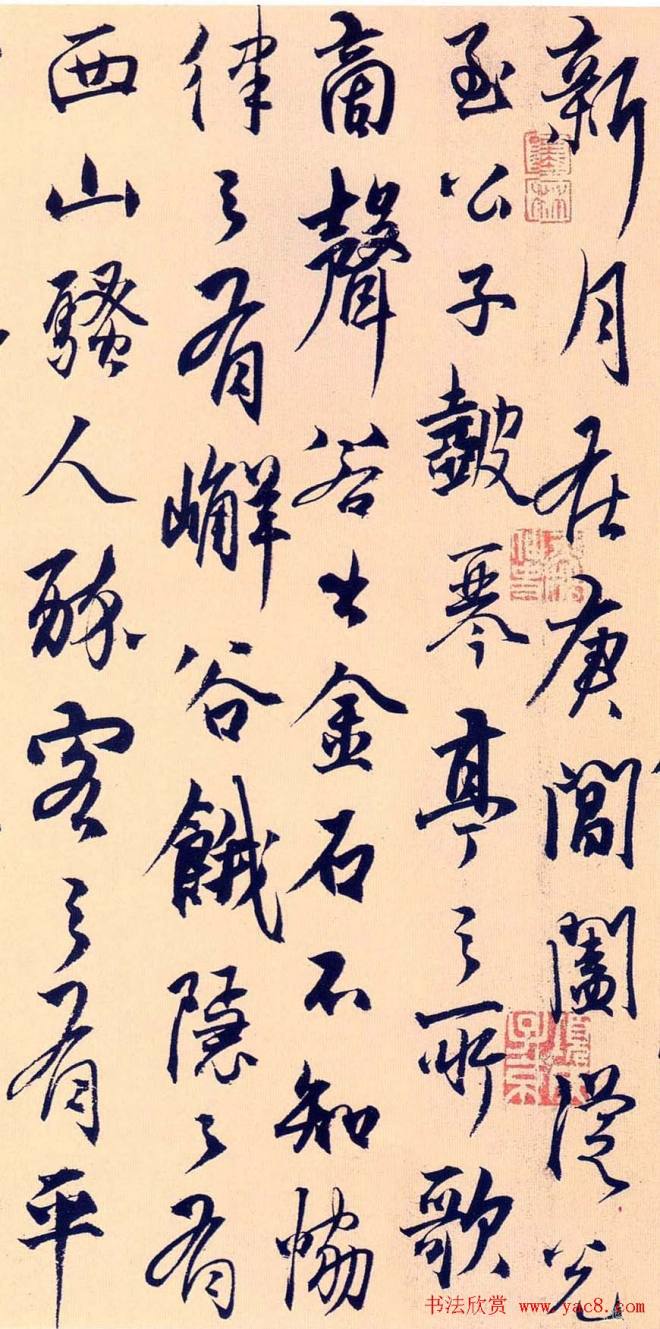 新月在庚閶闔光
至公子皷琴亭之所歌
商聲若出金石不知協
律之有嶰谷餓隱之有
西山騷人醉客之有平
书法欣赏 www.yac8.com